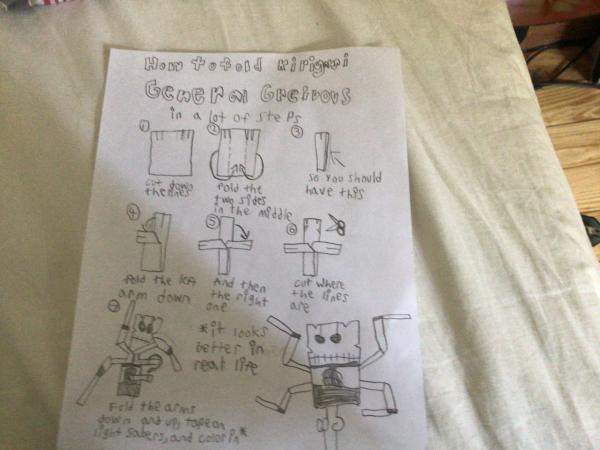 How to fold Kirigami
General Greivous
in a lot of steps
1
cut down
the lines
2
fold the
two sides
in the middle
3
so you should
have this
4
fold the left
arm down
5
And then
the right
one
6
cut where
the lines
are
7
Fold the arms
down and up, tape on
light sabers, and color in*
*it looks
better in
real life